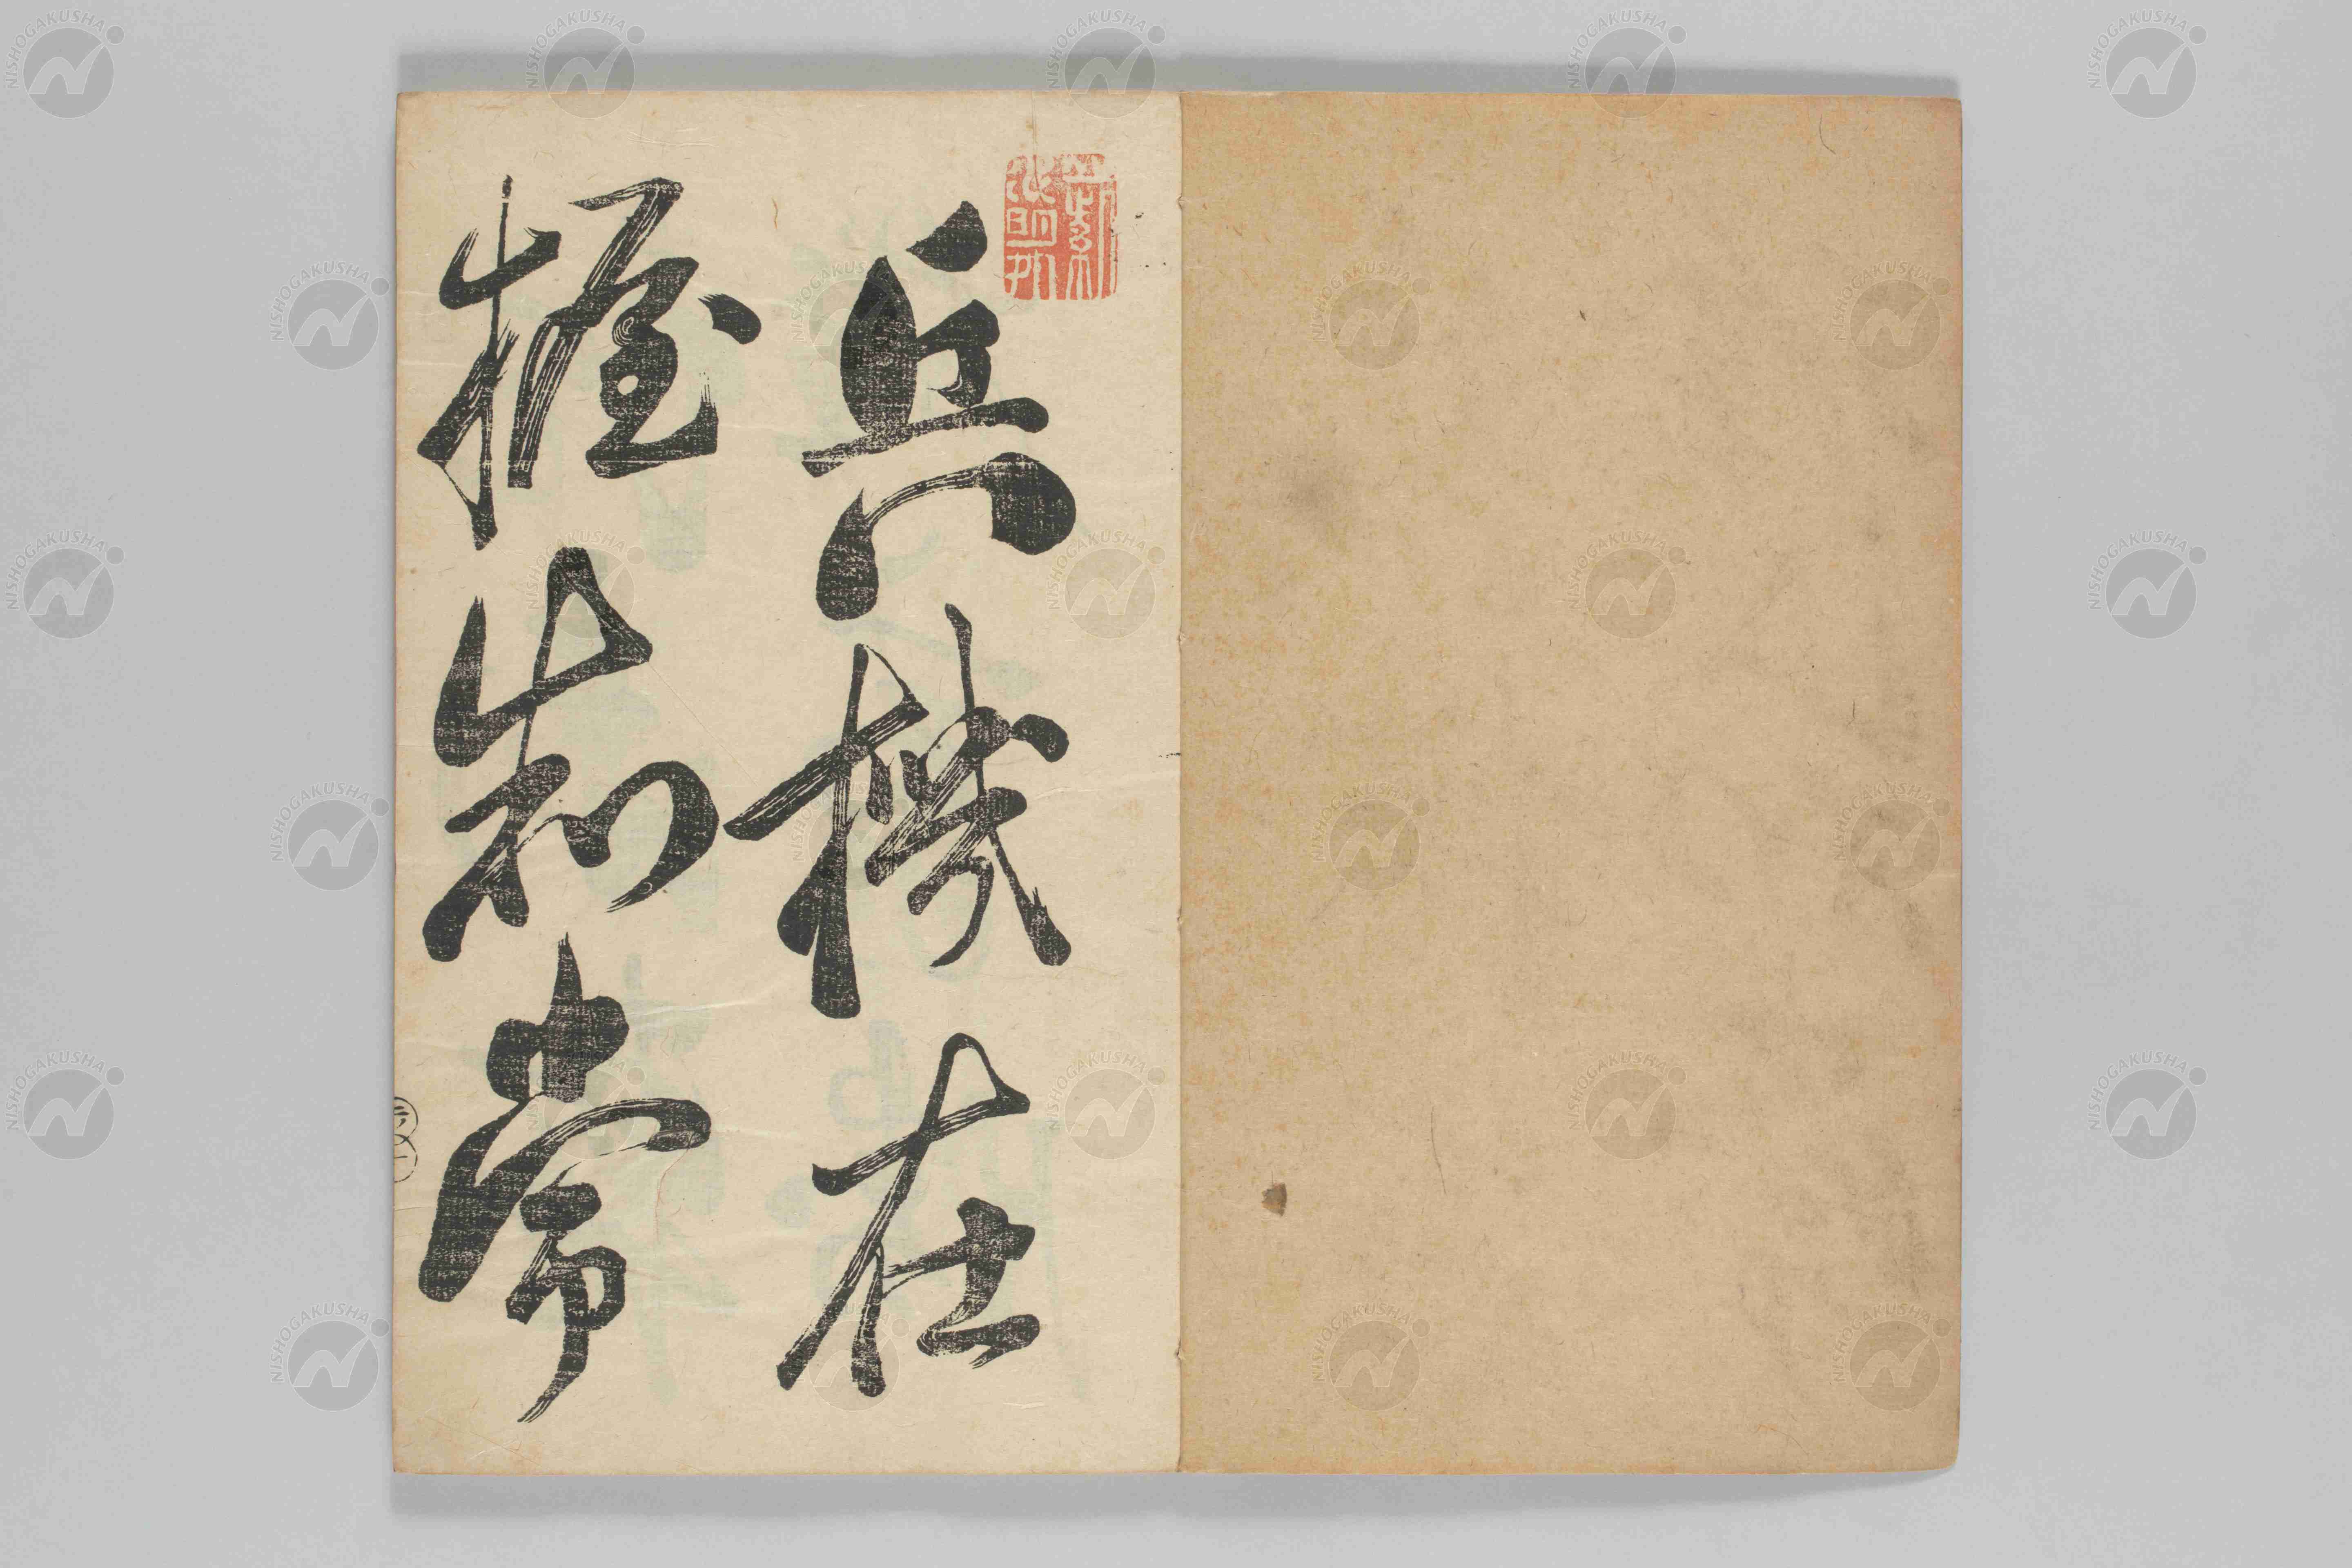 兵機在
握制常
NISHOGAKUSHA